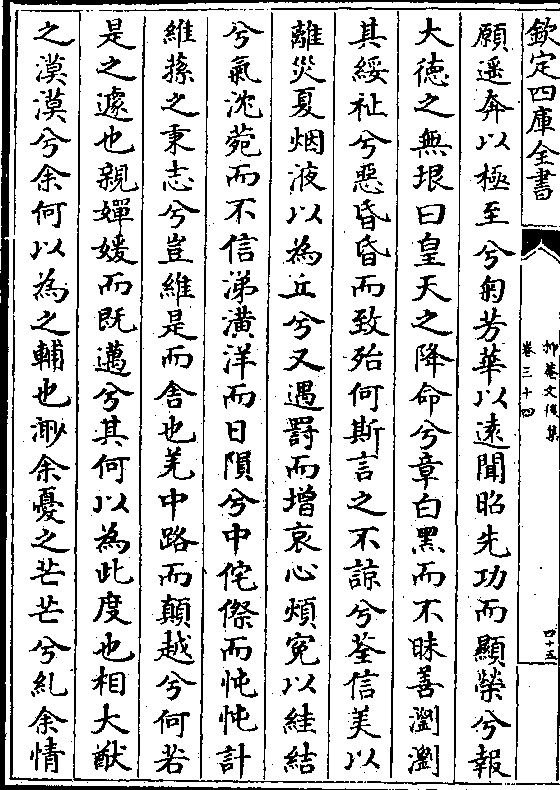 欽定四庫全書
抑菴文後集
卷三十四
四十五
願遥奔以極至兮匊芳華以遠聞昭先功而顯榮兮報
大德之無垠曰皇天之降命兮章白黑而不昧善瀏瀏
其綏祉兮惡昏昏而致殆何斯言之不諒兮荃信美以
離災夏烟液以為丘兮又遇罸而增哀心煩寃以絓結
兮氣沈菀而不信涕潢洋而日隕兮中侘傺而忳忳計
維搽之秉志兮豈維是而舎也羌中路而顛越兮何若
是之遽也親嬋媛而既邁兮其何以為此度也相大猷
之漠漠兮余何以為之輔也渺余憂之芒芒兮糺余情